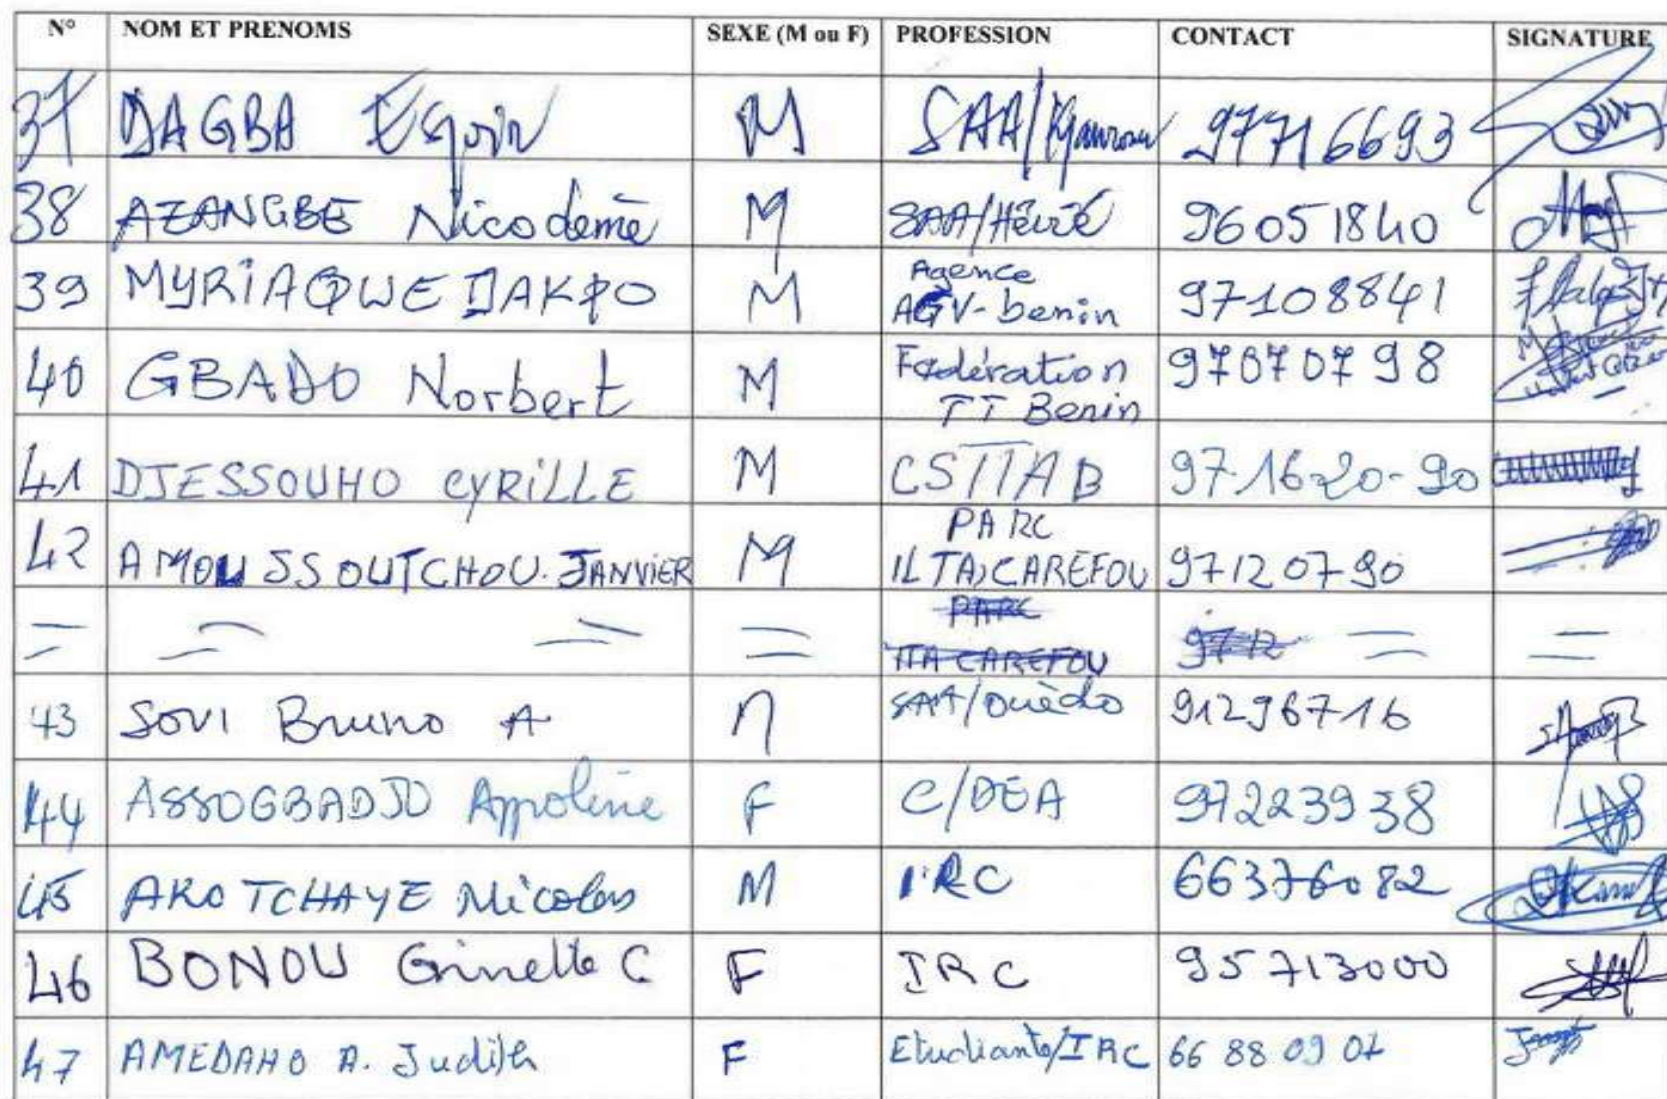 N° NOM ET PRENOMS SEXE (M ou F) PROFESSION CONTACT SIGNATURE
37 DAGBA M SAA/ 97716693
38 AZANGBE Nicodème M SAA/Hêvié 96051840
39 MYRIAQWE DAKPO M Agence
AGV-benin 97108841
40 GBADO Norbert M Fédération
TT Benin 97070798
41 DJESSOUHO CYRILLE M CSTTAB 97-16-20-90
42 AMOUSSOUTCHOU. JANVIER M PARC
ILTA,CAREFOU 97120790
PARC
ITA CAREFOU 9712
43 SOVI Bruno A M SAA/Ouèdo 91296716
44 ASSOGBADJO Appoline F C/DEA 97223938
45 AKOTCHAYE Nicolas M IRC 66376082
46 BONOU Ginette C F IRC 95713000
47 AMEDAHO A. Judith F Etudiante/IRC 66 88 09 07